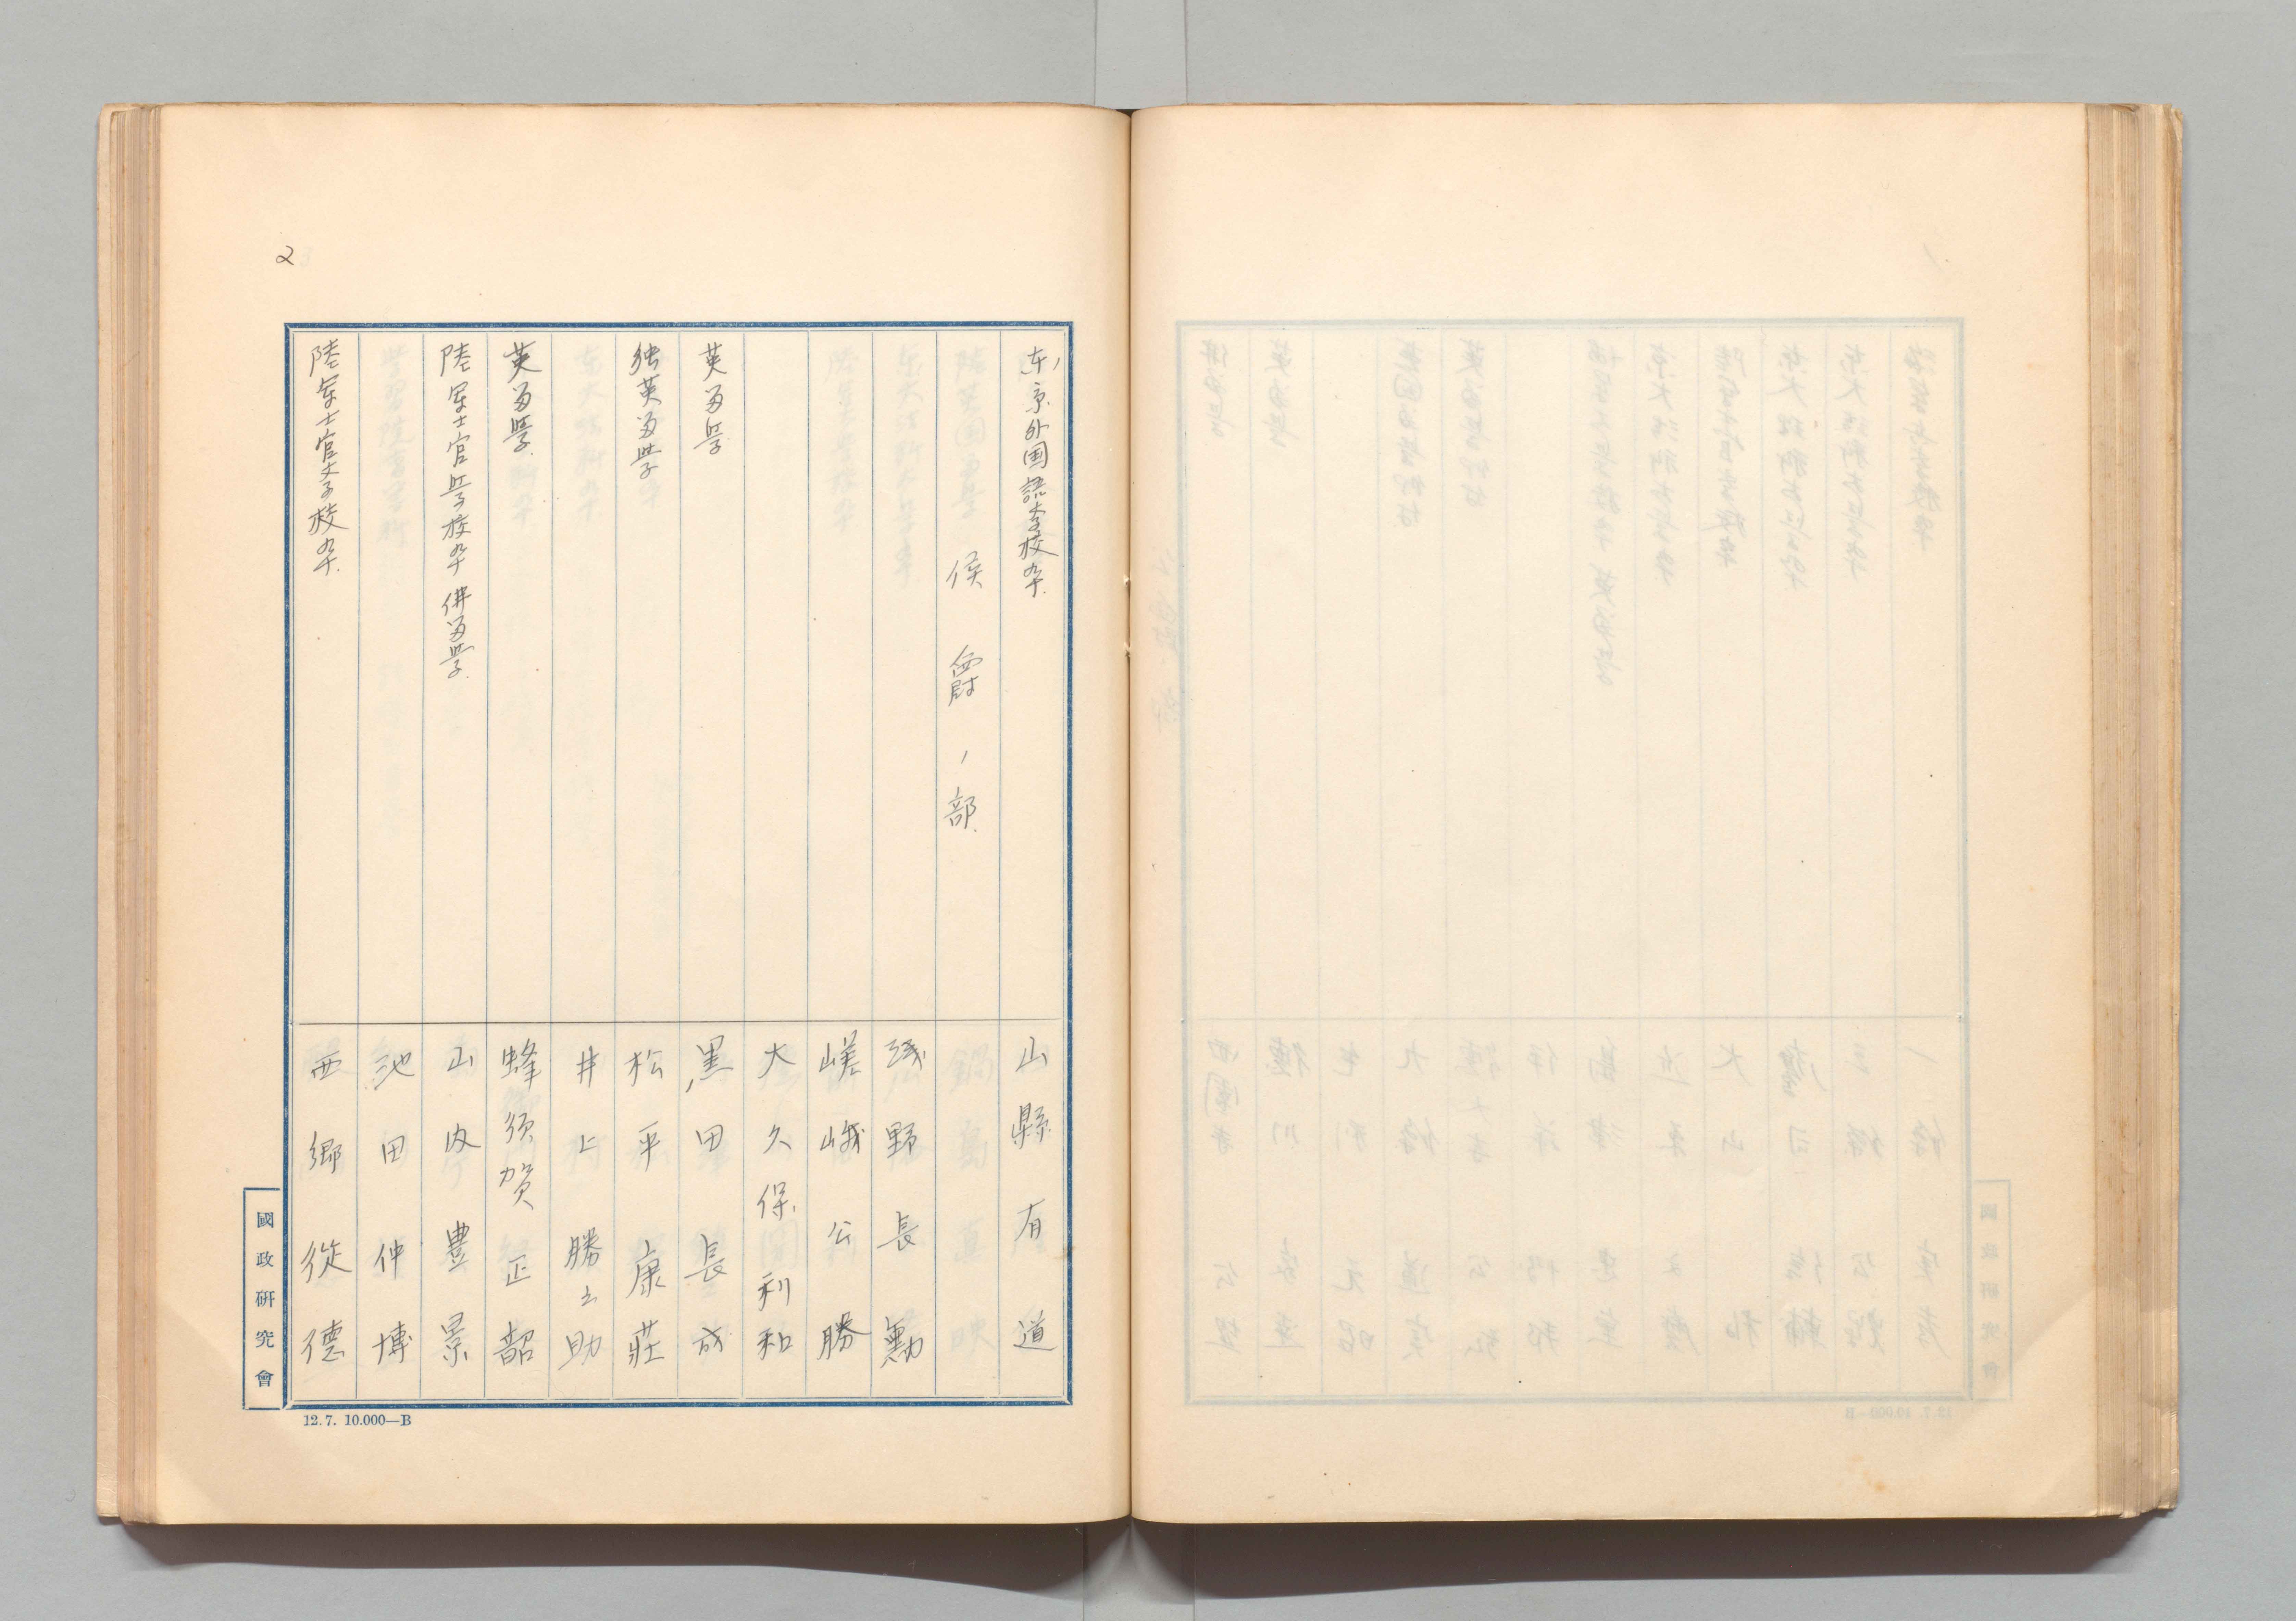 2
東京外国語学校卆.
山縣有道
侯爵ノ部.
浅野長勳
嵯峨公勝
大久保利和
英留学
黒田長成
独英留学
松平康荘
井上勝之助
英留学.
蜂須賀正韶
陸軍士官学校卆 佛留学.
山内豊景
池田仲博
陸軍士官学校卆.
西郷從德
國政硏究會
12.7. 10.000—B